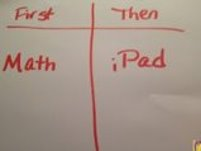 First Then
Math iPad